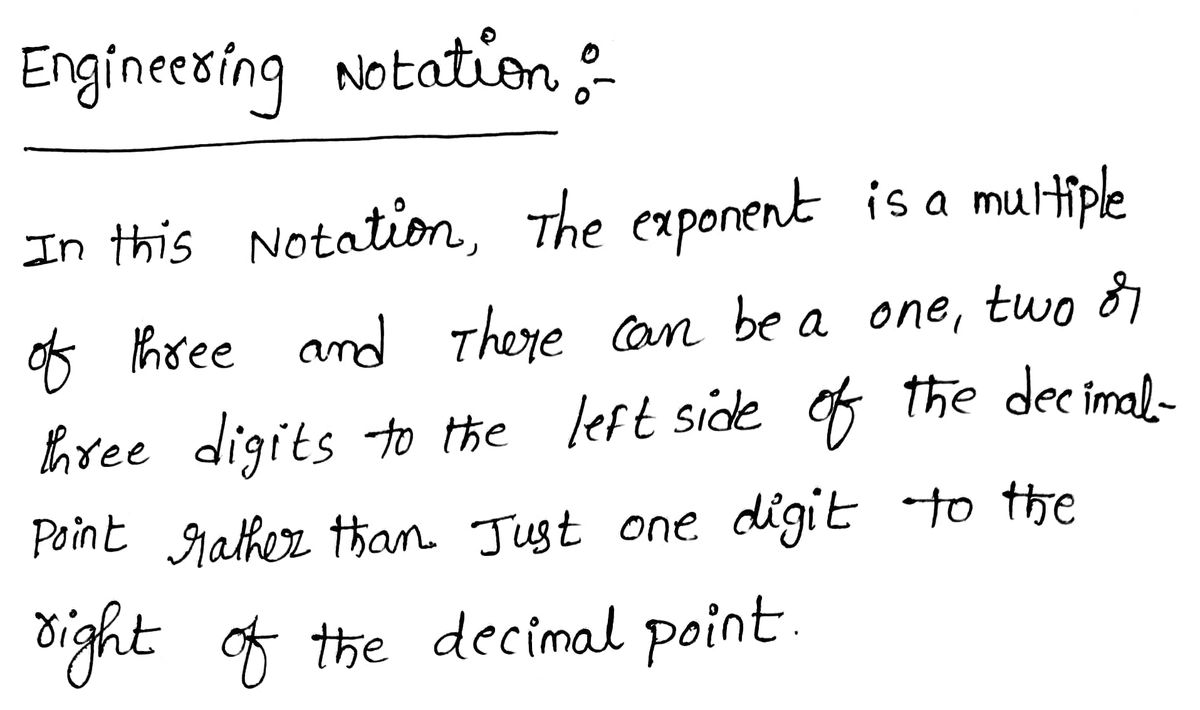 Engineering Notation :-
In this Notation, The exponent is a multiple
of three and There can be a one, two or
three digits to the left side of the decimal-
Point rather than Just one digit to the
right of the decimal point.